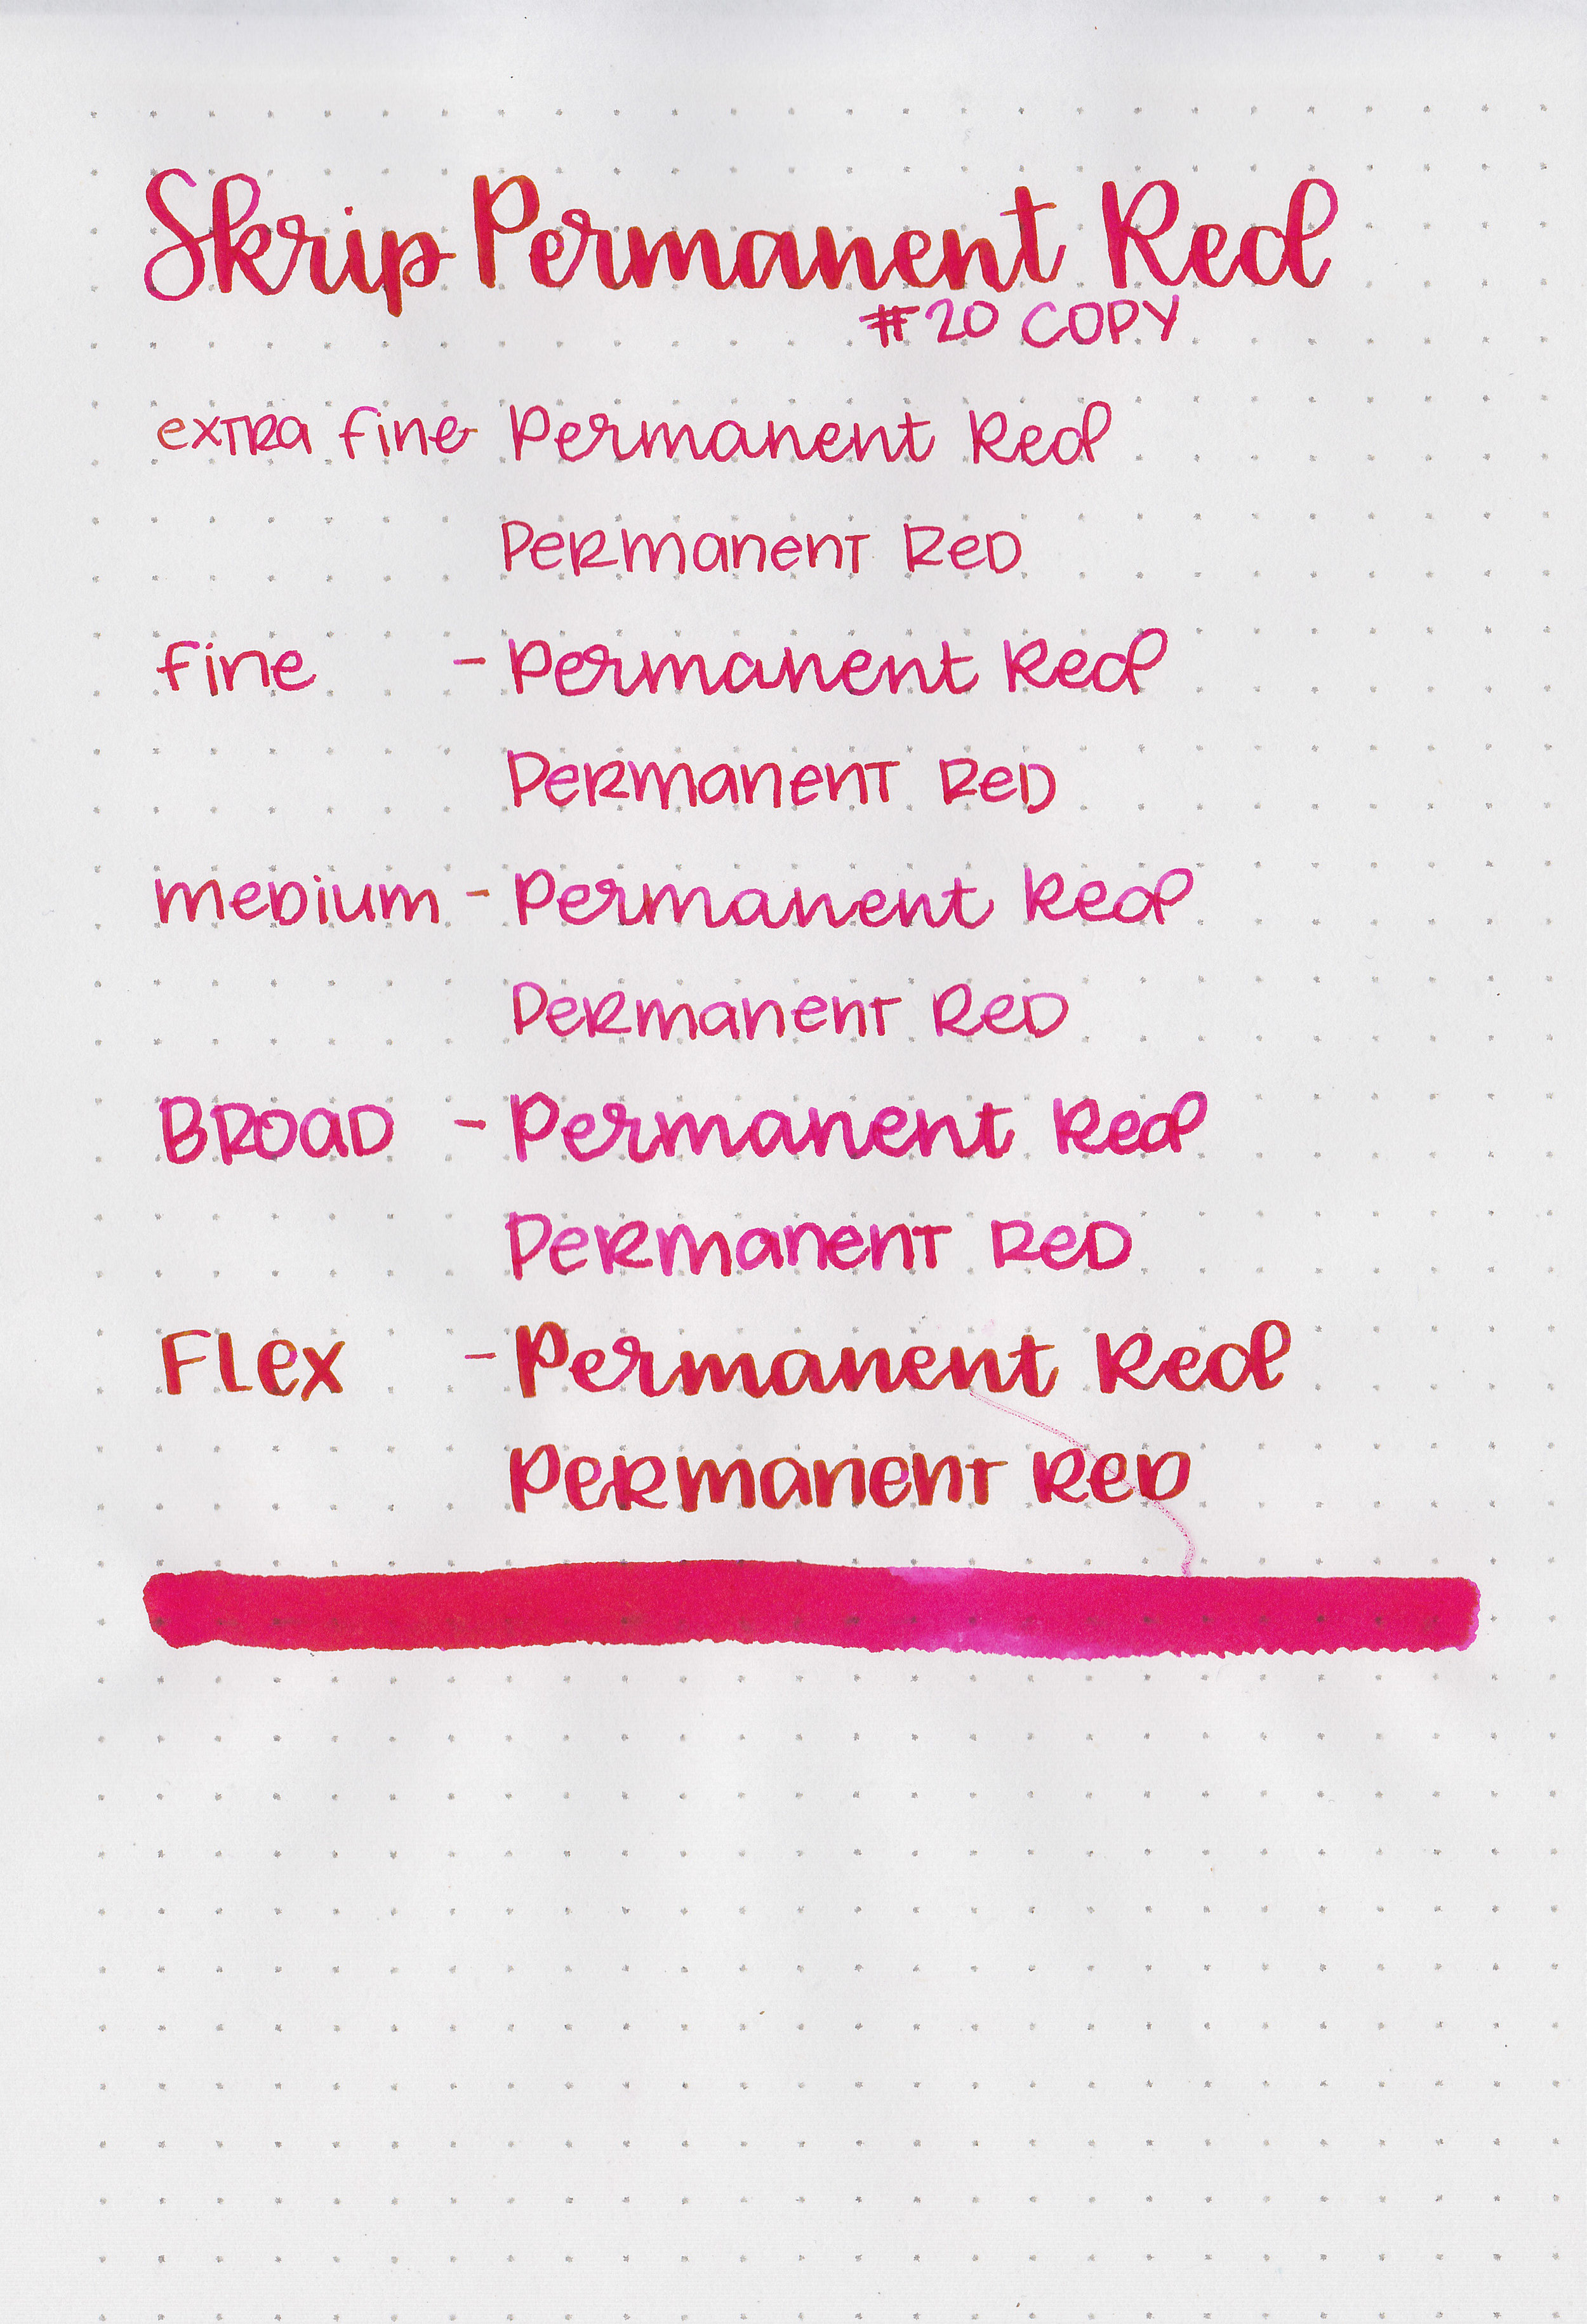 Skrip Permanent Red
#20 COPY
extra fine - Permanent Red
Permanent Red
fine - Permanent Red
Permanent Red
medium - Permanent Red
Permanent Red
Broad - Permanent Red
Permanent Red
Flex - Permanent Red
Permanent Red